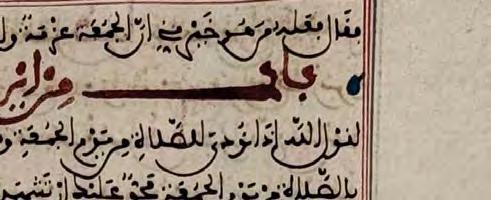 فقال فعله من هو خير مني ان الجمعة عزمة وا
باب من اين
لقول الله اذا نودي للصلاة من يوم الجمعة و
بالصلاة من يوم الجمعة فحق عليك ان تشهد